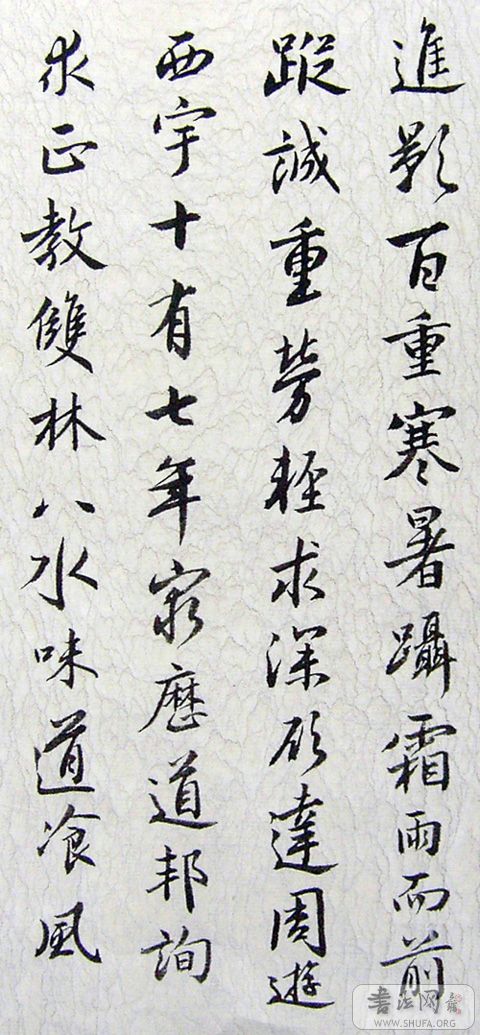 進影百重寒暑躡霜雨而前
蹤誠重勞輕求深願達周遊
西宇十有七年窮歷道邦詢
求正教雙林八水味道飡風
書法网
WWW.SHUFA.ORG